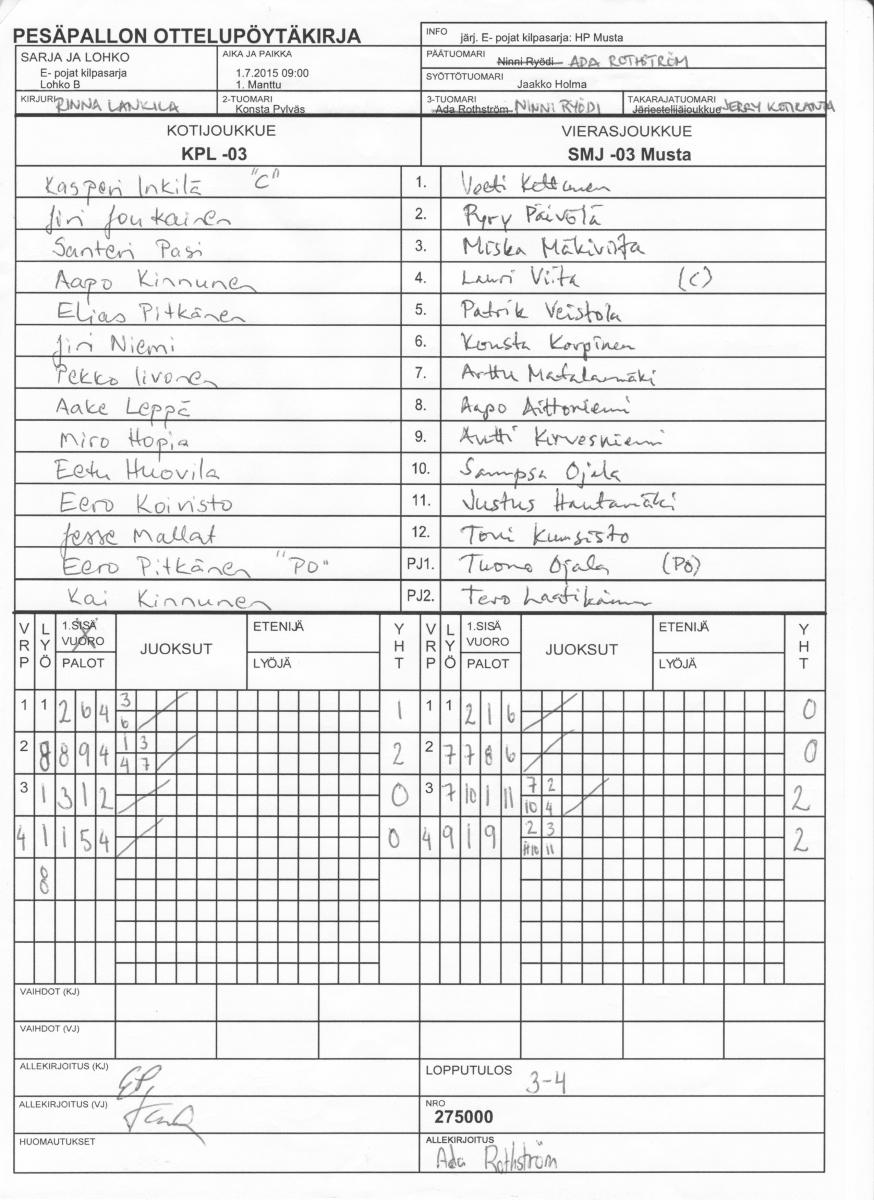 PESÄPALLON OTTELUPÖYTÄKIRJA
INFO järj. E- pojat kilpasarja: HP Musta
SARJA JA LOHKO
E- pojat kilpasarja
Lohko B
AIKA JA PAIKKA
1.7.2015 09:00
1. Manttu
PÄÄTUOMARI Ninni Ryödi ADA ROTHSTRÖM
SYÖTTÖTUOMARI
Jaakko Holma
KIRJURI RINNA LANKILA
2-TUOMARI
Konsta Pylväs
3-TUOMARI
Ada Rothström NINNI RYÖDI
TAKARAJATUOMARI
Järjestelijäjoukkue JERRY KOTIRANTA
KOTIJOUKKUE
KPL -03
VIERASJOUKKUE
SMJ -03 Musta
Kasperi Inkilä "C" 1. Veeti Kettunen
Jiri Joukainen 2. Pyry Päivölä
Santeri Pasi 3. Miska Mäkiviita
Aapo Kinnunen 4. Lauri Viita (C)
Elias Pitkänen 5. Patrik Veistola
Jiri Niemi 6. Konsta Korpinen
Pekko Iivonen 7. Arttu Matalamäki
Aake Leppä 8. Aapo Aittoniemi
Miro Hopia 9. Antti Kirvesniemi
Eetu Huovila 10. Sampsa Ojala
Eero Koivisto 11. Justus Hautamäki
Jesse Mallat 12. Toni Kumsisto
Eero Pitkänen "PO" PJ1. Tuomo Ojala (PÖ)
Kai Kinnunen PJ2. Tero
VRP LYÖ 1.SISÄ VUORO PALOT JUOKSUT ETENIJÄ LYÖJÄ YHT VRP LYÖ 1.SISÄ VUORO PALOT JUOKSUT ETENIJÄ LYÖJÄ YHT
1 1 2 6 4 3 1 1 1 2 1 6 0
6
2 8 8 9 4 1 3 2 2 7 7 8 6 0
4 7
3 1 3 1 2 0 3 7 10 1 11 7 2 2
10 4
4 1 1 5 4 0 4 9 1 9 2 3 2
10 11
8
VAIHDOT (KJ)
VAIHDOT (VJ)
ALLEKIRJOITUS (KJ)
LOPPUTULOS 3-4
ALLEKIRJOITUS (VJ)
NRO
275000
HUOMAUTUKSET
ALLEKIRJOITUS
Ada Rothström